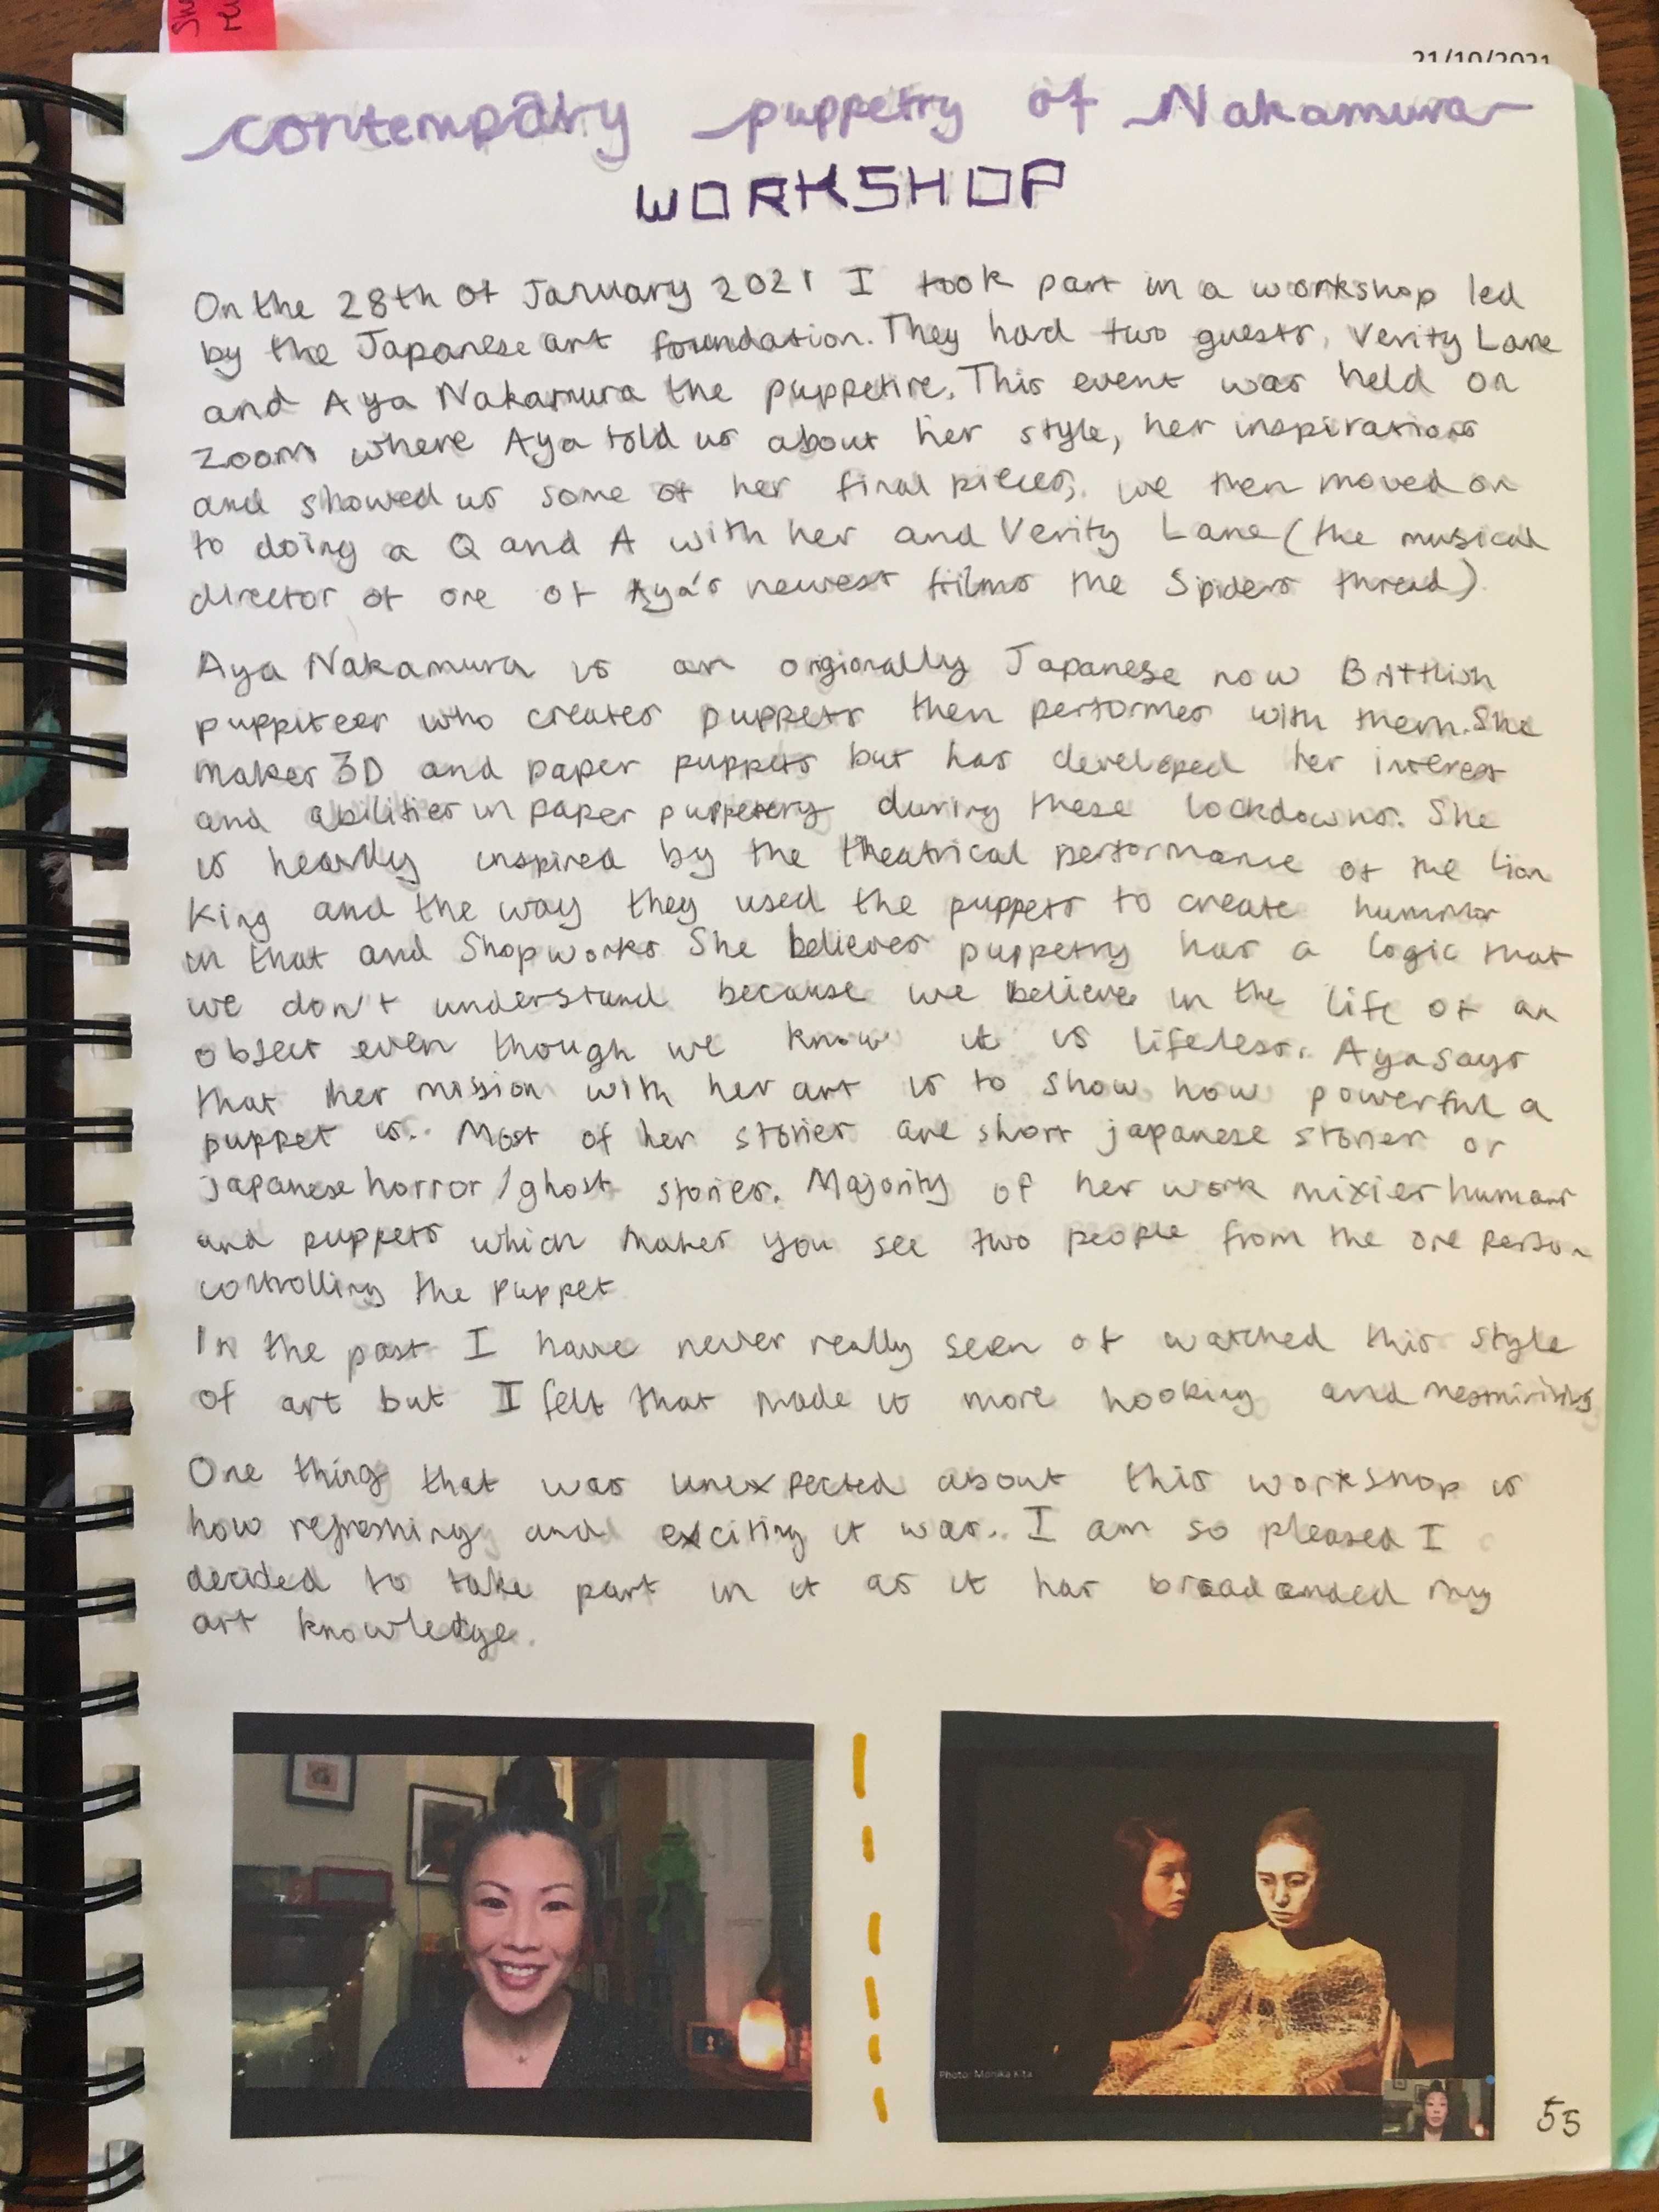 21/10/2021
contemporary puppetry of Nakamura
WORKSHOP
On the 28th of January 2021 I took part in a workshop led
by the Japanese art foundation. They had two guests, Verity Lane
and Aya Nakamura the puppetire. This event was held on
zoom where Aya told us about her style, her inspirations
and showed us some of her final pieces, we then moved on
to doing a Q and A with her and Verity Lane (the musical
director of one of Aya's newest films the Spiders thread).
Aya Nakamura is an orgionally Japanese now Brittish
puppiteer who creates puppets then performes with them. She
makes 3D and paper puppets but has developed her interest
and abilities in paper puppetery during these lockdowns. She
is heavily inspired by the theatrical performance of the Lion
King and the way they used the puppets to create humor
in that and Shopworks She believes puppetry has a logic that
we don't understand because we believe in the life of an
object even though we know it is lifeless. Aya says
that her mission with her art is to show how powerful a
puppet is. Most of her stories are short japanese stories or
japanese horror/ghost stories. Majority of her work mixies humans
and puppets which makes you see two people from the one person
controlling the puppet
In the past I have never really seen of watched this style
of art but I felt that made it more hooking and mesmirising
One thing that was unexpected about this workshop is
how refreshing and exciting it was. I am so pleased I
decided to take part in it as it has broadended my
art knowledge.
Photo: Monika Kita
55